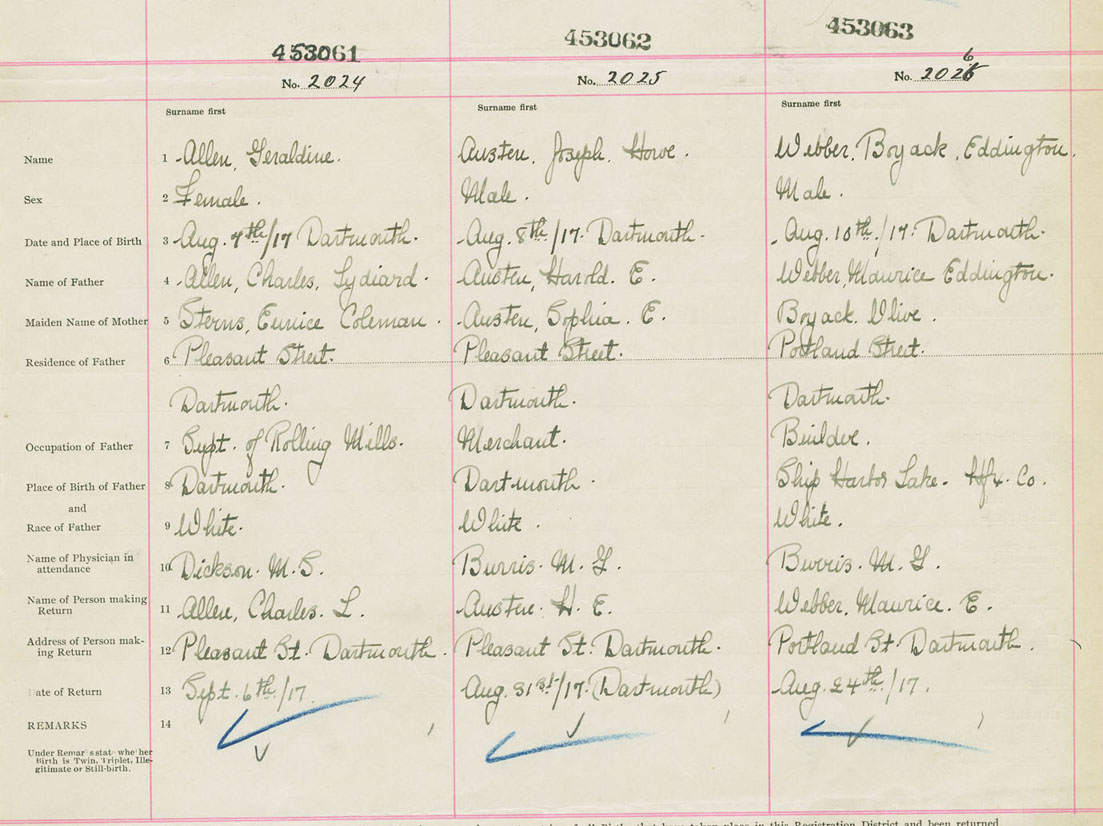 453061 453062 453063
No. 2024 No. 2025 No. 2026
Surname first Surname first Surname first
Name 1 Allen, Geraldine. Austen, Joseph, Howe. Webber, Boyack, Eddington.
Sex 2 Female. Male. Male.
Date and Place of Birth 3 Aug. 7th/17 Dartmouth. Aug. 8th/17. Dartmouth. Aug. 10th/17. Dartmouth.
Name of Father 4 Allen, Charles, Lydiard. Austen, Harold. E. Webber, Maurice Eddington.
Maiden Name of Mother 5 Sterns, Eunice Coleman. Austen, Sophia. E. Boyack. Olive.
Residence of Father 6 Pleasant Street. Pleasant Street. Portland Street.
Dartmouth. Dartmouth. Dartmouth.
Occupation of Father 7 Supt. of Rolling Mills. Merchant. Builder.
Place of Birth of Father 8 Dartmouth. Dartmouth. Ship Harbor Lake. Hfx. Co.
and
Race of Father 9 White. White. White.
Name of Physician in
attendance 10 Dickson. M. S. Burris. M. G. Burris. M. G.
Name of Person making
Return 11 Allen, Charles. L. Austen. H. E. Webber, Maurice. E.
Address of Person mak-
ing Return 12 Pleasant St. Dartmouth. Pleasant St. Dartmouth. Portland St. Dartmouth.
ate of Return 13 Sept. 6th/17. Aug. 31st/17. (Dartmouth) Aug. 24th/17.
REMARKS 14
Under Remar s stat whe her
Birth is Twin, Triplet, Ille-
gitimate or Still-birth.
that have taken place in this Registration District and been returned